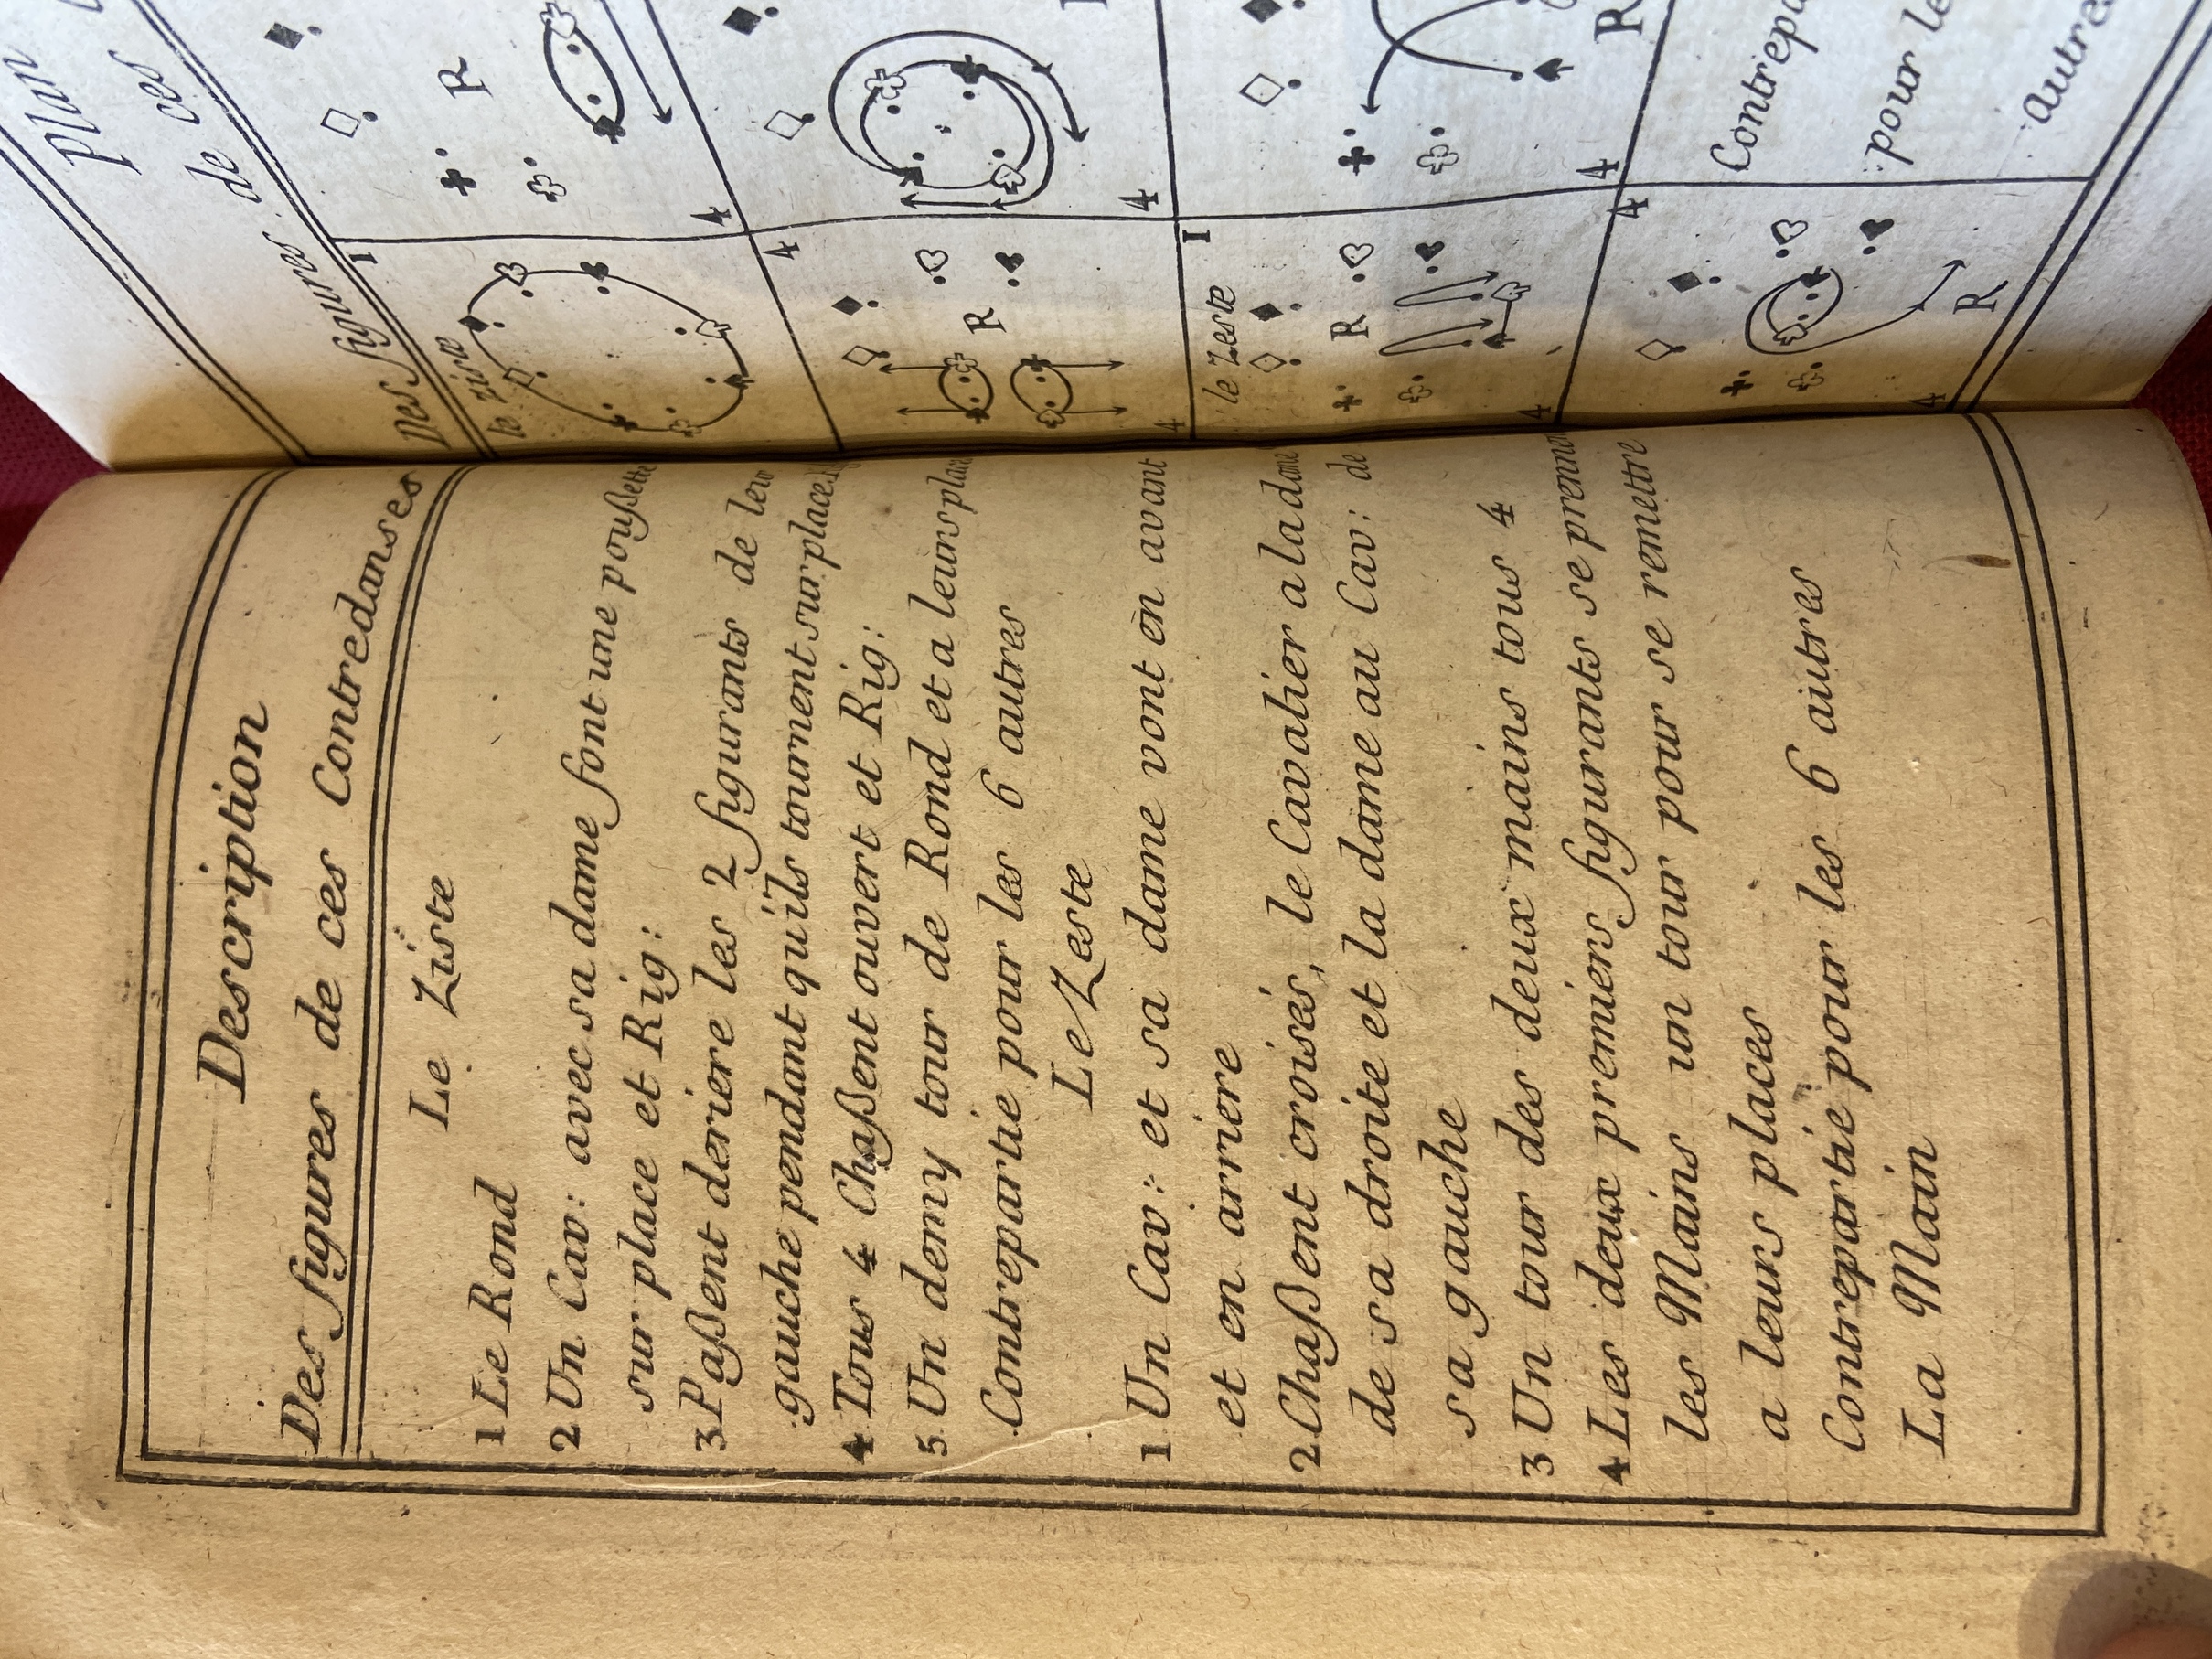 Description
Des figures de ces Contredanses
Le Ziste
1 Le Rond
2 Un Cav: avec sa dame font une poußette
sur place et Rig:
3 Paßent deriere les 2 figurants de leur
gauche pendant qu'ils tournent sur place
4 Tous 4 Chaßent ouvert et Rig:
5 Un demy tour de Rond et a leurs place
Contrepartie pour les 6 autres
Le Zeste
1 Un Cav: et sa dame vont en avant
et en arriere
2 Chaßent croisés, le Cavalier a la dame
de sa droite et la dame au Cav: de
sa gauche
3 Un tour des deux mains tous 4
4 Les deux premiers figurants se prennen
les Mains un tour pour se remettre
a leurs places
Contrepartie pour les 6 autres
La Main
Plan
Des figures de ces
1
le Ziste
R
4
4
R
4
4
1
le Zeste
R
4
4
R
4
R
4
Contrepa
pour le
autre